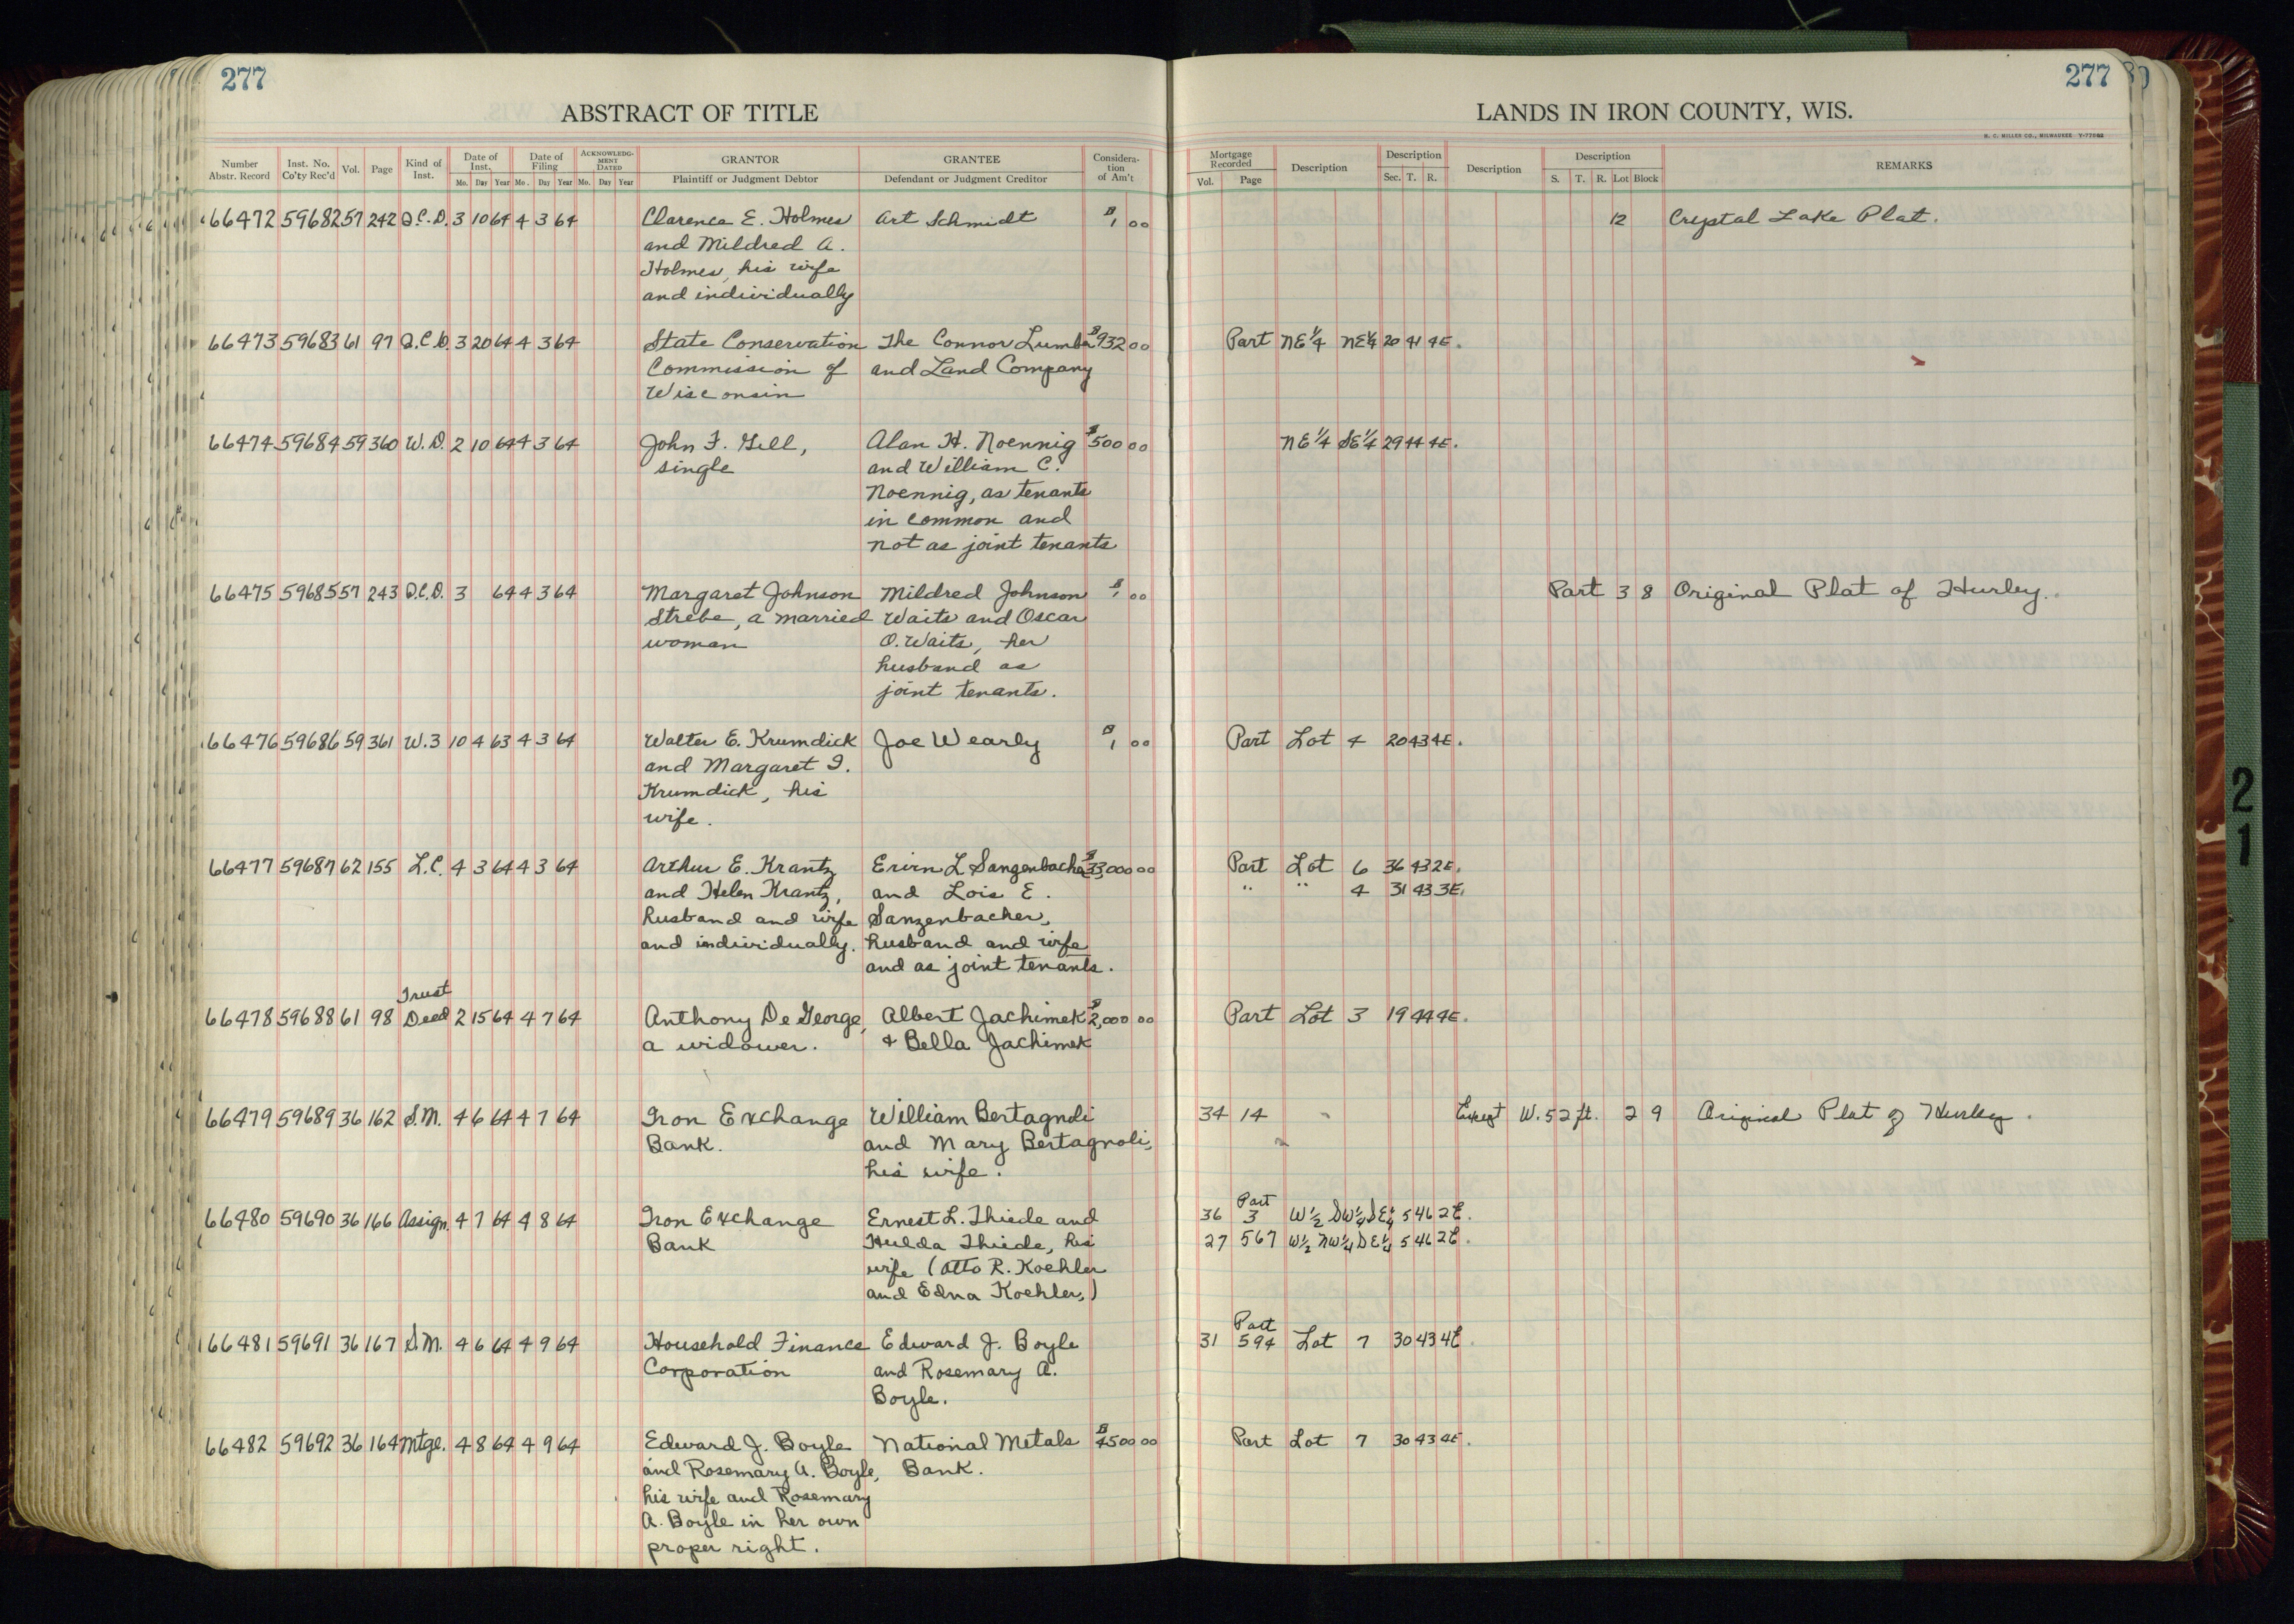 277
ABSTRACT OF TITLE
Number Abstr. Record Inst. No. Co'ty Rec'd Vol. Page Kind of Inst. Date of Inst. Mo. Day Year Date of Filing Mo. Day Year ACKNOWLEDG-MENT DATED Mo. Day Year GRANTOR Plaintiff or Judgment Debtor GRANTEE Defendant or Judgment Creditor Considera-tion of Am't
66472 59682 57 242 Q.C.D. 3 10 64 4 3 64 Clarence E. Holmes Art Schmidt $1 00
and Mildred A.
Holmes, his wife
and individually
66473 59683 61 97 Q.C.D. 3 20 64 4 3 64 State Conservation The Connor Lumber $932 00
Commission of and Land Company
Wisconsin
66474 59684 59 360 W.D. 2 10 64 4 3 64 John F. Gell, Alan H. Noennig $500 00
single and William C.
Noennig, as tenants
in common and
not as joint tenants
66475 59685 57 243 Q.C.D. 3 64 4 3 64 Margaret Johnson Mildred Johnson $1 00
Strebe, a married Waits and Oscar
woman O. Waits, her
husband as
joint tenants.
66476 59686 59 361 W.3 10 4 63 4 3 64 Walter E. Krumdick Joe Wearly $1 00
and Margaret I.
Krumdick, his
wife.
66477 59687 62 155 L.C. 4 3 64 4 3 64 Arthur E. Krantz Ervin L Sangenbacher $33,000 00
and Helen Krantz, and Lois E.
husband and wife Sanzenbacher,
and individually. husband and wife
and as joint tenants.
Trust
66478 59688 61 98 Deed 2 15 64 4 7 64 Anthony De George, Albert Jachimek $2,000 00
a widower. + Bella Jachimek
66479 59689 36 162 S.M. 4 6 64 4 7 64 Iron Exchange William Bertagnoli
Bank. and Mary Bertagnoli,
his wife.
66480 59690 36 166 Assign. 4 7 64 4 8 64 Iron Exchange Ernest L. Thiede and
Bank Hulda Thiede, his
wife (Otto R. Koehler
and Edna Koehler,)
66481 59691 36 167 S.M. 4 6 64 4 9 64 Household Finance Edward J. Boyle
Corporation and Rosemary A.
Boyle.
66482 59692 36 164 Mtge. 4 8 64 4 9 64 Edward J. Boyle National Metals $4500 00
and Rosemary A. Boyle, Bank.
his wife and Rosemary
A. Boyle in her own
proper right.
277
LANDS IN IRON COUNTY, WIS.
H. C. MILLER CO., MILWAUKEE
Mortgage Recorded Vol. Page Description Description Sec. T. R. Description Description S. T. R. Lot Block REMARKS
12 Crystal Lake Plat.
Part NE¼ NE¼ 20 41 4E.
NE¼ SE¼ 29 44 4E.
Part 3 8 Original Plat of Hurley.
Part Lot 4 20 43 4E.
Part Lot 6 36 43 2E.
" " 4 31 43 3E.
Part Lot 3 19 44 4E.
34 14 Except W. 52 ft. 2 9 Original Plat of Hurley.
Part
36 3 W½ SW¼ SE¼ 5 46 2E.
27 567 W½ NW¼ SE¼ 5 46 2E.
Part
31 594 Lot 7 30 43 4E.
Part Lot 7 30 43 4E.
21